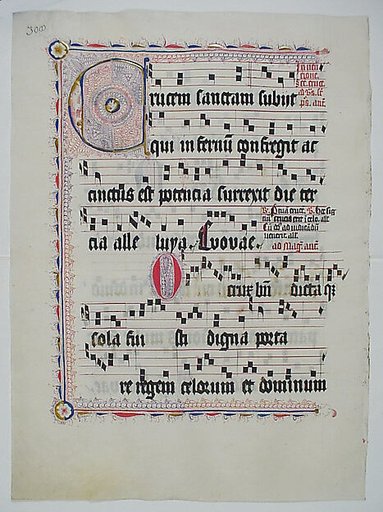 Crucem sanctam subijt
qui infernũ confregit ac
cinctus est potencia surrexit die ter
cia alle luya. Euouae.
ad mag̃ anẽ
O crux bñ dicta q̃
sola fui sti digna porta
re regem celorum et dominum